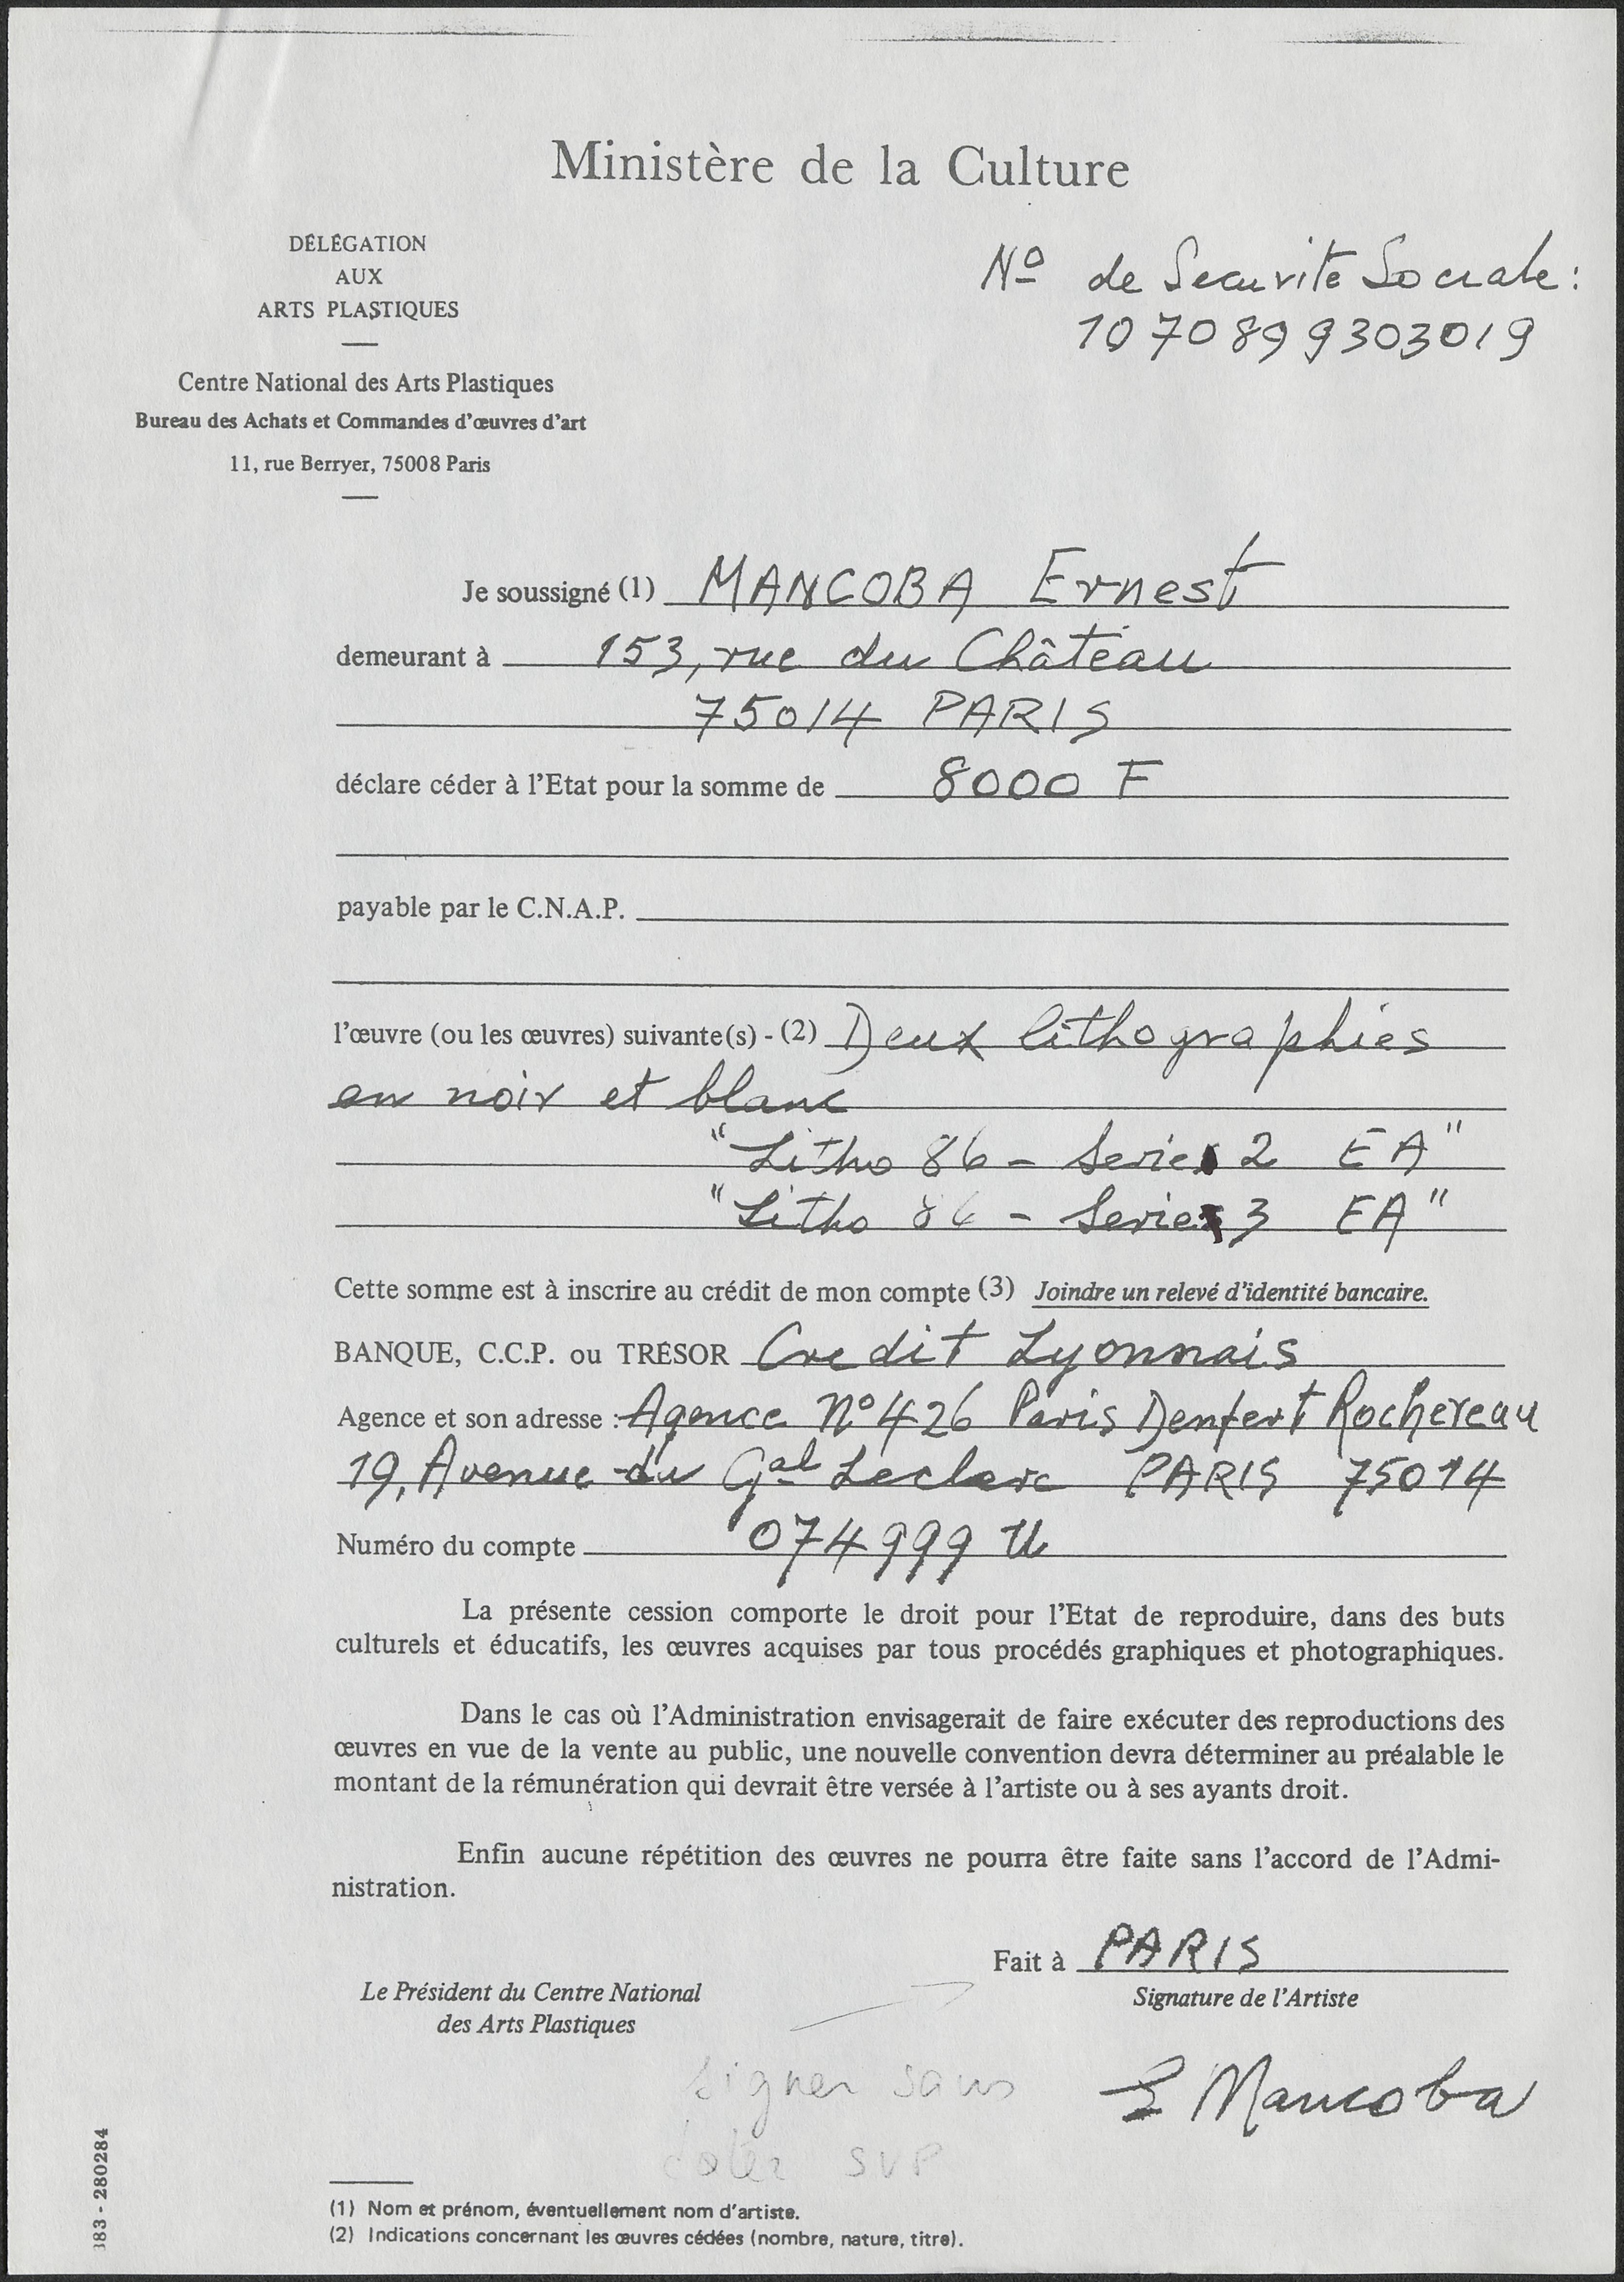 Ministère de la Culture
DÉLÉGATION
AUX
ARTS PLASTIQUES
Centre National des Arts Plastiques
Bureau des Achats et Commandes d'œuvres d'art
11, rue Berryer, 75008 Paris
Nº de Securite Sociale:
1070899303019
Je soussigné (1) MANCOBA Ernest
demeurant à 153, rue du Château
75014 PARIS
déclare céder à l'Etat pour la somme de 8000 F
payable par le C.N.A.P.
l'œuvre (ou les œuvres) suivante(s) - (2) Deux lithographies
en noir et blanc
"Litho 86 - Serie 2 EA"
"Litho 86 - Serie 3 EA"
Cette somme est à inscrire au crédit de mon compte (3) Joindre un relevé d'identité bancaire.
BANQUE, C.C.P. ou TRÉSOR Credit Lyonnais
Agence et son adresse : Agence Nº 426 Paris Denfert Rochereau
19, Avenue du Gal Leclerc PARIS 75014
Numéro du compte 074999 U
La présente cession comporte le droit pour l'Etat de reproduire, dans des buts
culturels et éducatifs, les œuvres acquises par tous procédés graphiques et photographiques.
Dans le cas où l'Administration envisagerait de faire exécuter des reproductions des
œuvres en vue de la vente au public, une nouvelle convention devra déterminer au préalable le
montant de la rémunération qui devrait être versée à l'artiste ou à ses ayants droit.
Enfin aucune répétition des œuvres ne pourra être faite sans l'accord de l'Admi-
nistration.
Fait à PARIS
Le Président du Centre National
des Arts Plastiques
Signature de l'Artiste
signer sans
dater SVP
E Mancoba
(1) Nom et prénom, éventuellement nom d'artiste.
(2) Indications concernant les œuvres cédées (nombre, nature, titre).
383 - 280284